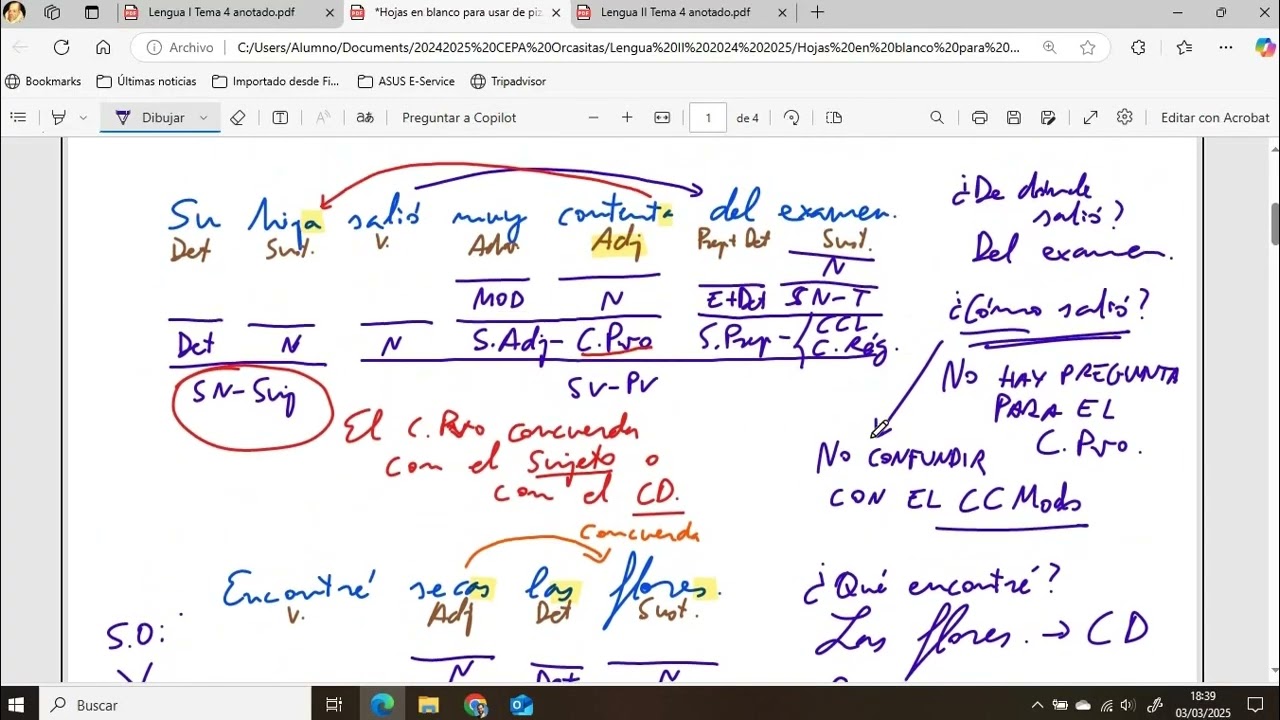 Lengua I Tema 4 anotado.pdf
*Hojas en blanco para usar de piz
Lengua II Tema 4 anotado.pdf
Archivo
C:/Users/Alumno/Documents/20242025%20CEPA%20Orcasitas/Lengua%20II%202024%202025/Hojas%20en%20blanco%20para%20...
Bookmarks
Últimas noticias
Importado desde Fi...
ASUS E-Service
Tripadvisor
Dibujar
Preguntar a Copilot
1
de 4
Editar con Acrobat
Su hija salió muy contenta del examen.
Det Sust. V. Adv Adj Prep+Det Sust.
N
MOD N E+Det SN-T
Det N N S.Adj-C.Pvo S.Prep- CCL
C.Rég.
SN-Suj SV-PV
El C.Pvo concuerda
con el Sujeto o
con el CD.
¿De dónde
salió?
Del examen.
¿Cómo salió?
NO HAY PREGUNTA
PARA EL
C.Pvo.
NO CONFUNDIR
CON EL CCModo
concuerda
Encontré secas las flores.
V. Adj Det Sust.
S.O:
N Det N
¿Qué encontré?
Las flores. → CD
Buscar
18:39
03/03/2025